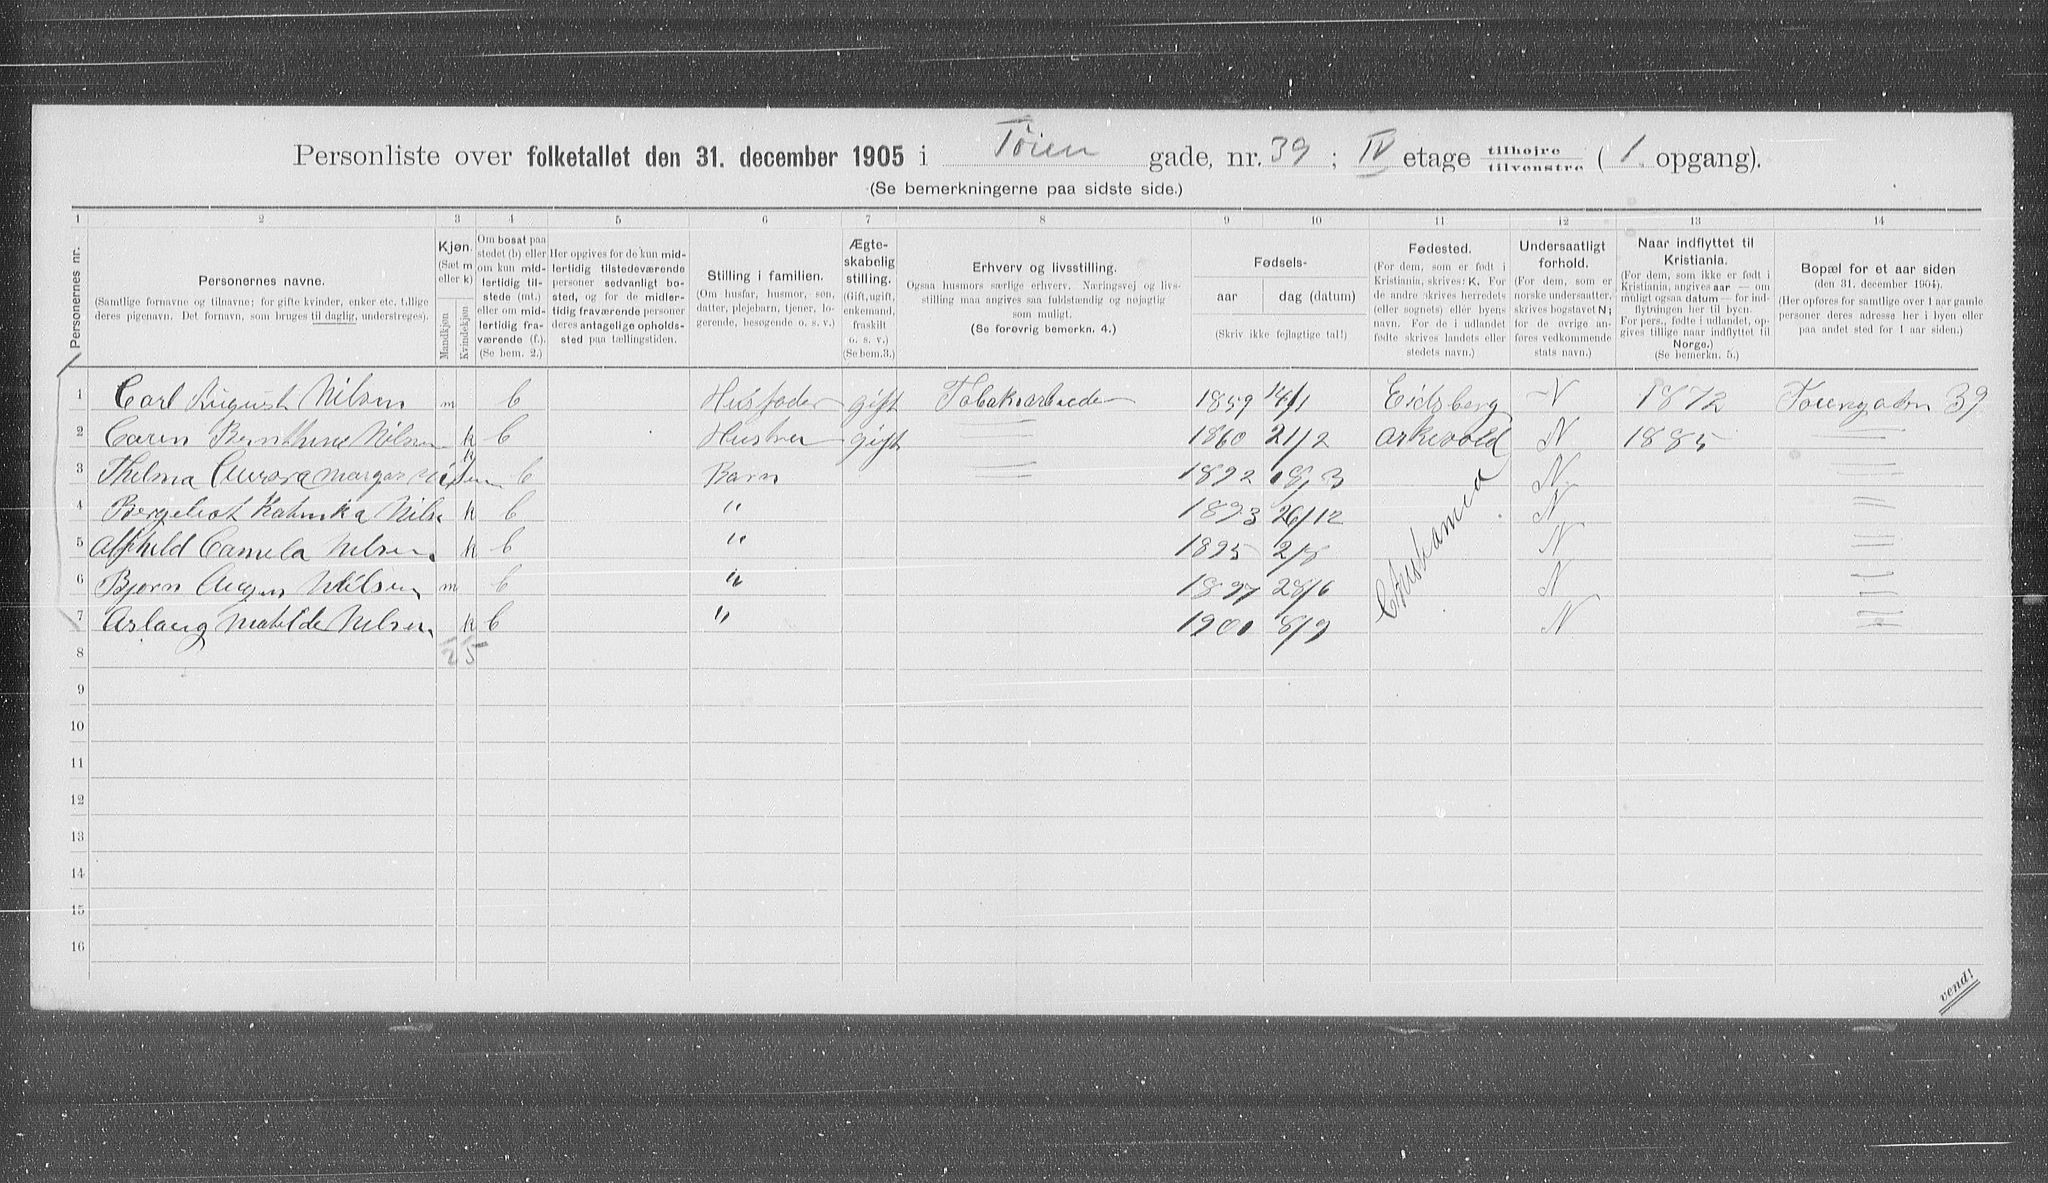 Personliste over folketallet den 31. december 1905 i Tøien gade, nr. 39; IV etage tilhøjre tilvenstre (1. opgang).
(Se bemerkningerne paa sidste side.)
1 2 3 4 5 6 7 8 9 10 11 12 13 14
Personernes nr.
Personernes navne.
(Samtlige fornavne og tilnavne; for gifte kvinder, enker etc. tillige
deres pigenavn. Det fornavn, som bruges til daglig, understreges).
Kjøn.
(Sæt m
eller k)
Mandkjøn
Kvindekjøn
Om bosat paa
stedet (b) eller
om kun mid-
lertidig til-
stede (mt.)
eller om mid-
lertidig fra-
værende (f.).
(Se bem. 2.)
Her opgives for de kun mid-
lertidig tilstedeværende
personer sedvanligt bo-
sted, og for de midler-
tidig fraværende personer
deres antagelige opholds-
sted paa tællingstiden.
Stilling i familien.
(Om husfar, husmor, søn,
datter, plejebarn, tjener, lo-
gerende, besøgende o. s. v.)
Ægte-
skabelig
stilling.
(Gift, ugift,
enkemand,
fraskilt
o. s. v.)
(Se bem. 3.)
Erhverv og livsstilling.
Ogsaa husmors særlige erhverv. Næringsvej og livs-
stilling maa angives saa fuldstændig og nøjagtig
som muligt.
(Se forøvrig bemerkn. 4.)
Fødsels-
aar dag (datum)
(Skriv ikke fejlagtige tal!)
Fødested.
(For dem, som er født i
Kristiania, skrives: K. For
de andre skrives herredets
(eller sognets) eller byens
navn. For de i udlandet
fødte skrives landets eller
stedets navn.)
Undersaatligt
forhold.
(For dem, som er
norske undersaatter,
skrives bogstavet N;
for de øvrige an-
føres vedkommende
stats navn.)
Naar indflyttet til
Kristiania.
(For dem, som ikke er født i
Kristiania, angives aar — om
muligt ogsaa datum — for ind-
flytningen her til byen.
For pers., fødte i udlandet, op-
gives tillige naar indflyttet til
Norge.)
(Se bemerkn. 5.)
Bopæl for et aar siden
(den 31. december 1904).
(Her opføres for samtlige over 1 aar gamle
personer deres adresse her i byen eller
paa andet sted for 1 aar siden.)
1 Carl August Nilsen m b Husfader gift Tobaksarbeider 1859 14/1 Eidsberg N 1872 Toiengaden 39
2 Caren Bernthine Nilsen k b Hustru gift 1860 21/2 N 1885
3 Thelma Aurora b Barn 1892 18/3 Christiania N
4 Bergeliot Katinka Nilse k b " 1893 26/12 N
5 Alfhild Camela Nilsen k b " 1895 2/8 N
6 Bjørn Nilsen m b " 1897 28/6 N
7 Aslaug Matilde Nilsen k b " 1900 8/9 N
8 2 5
9
10
11
12
13
14
15
16
vend!